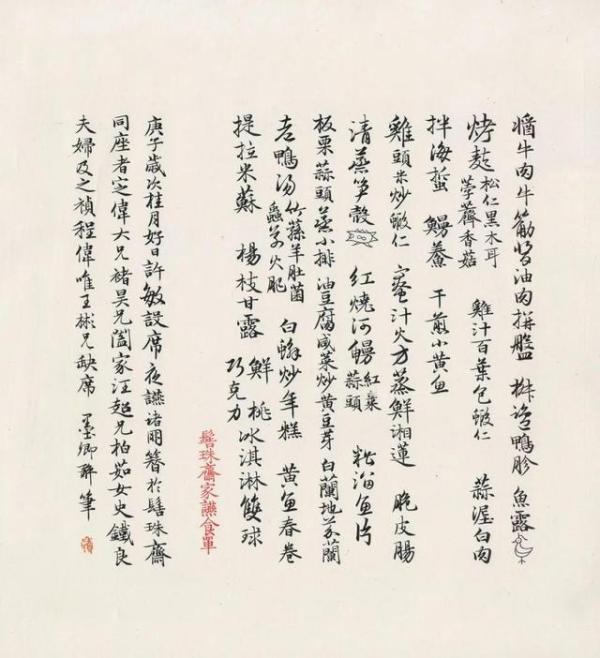 醬牛肉牛筋醬油肉拼盤 鴨胗 魚露
烤麩 松仁黑木耳 荸薺香菇 雞汁百葉包蝦仁 蒜泥白肉
拌海蜇 鰻鯗 干煎小黄鱼
雞頭米炒蝦仁 蜜汁火方蒸鮮湘蓮 脆皮腸
清蒸笋殼 紅燒河鰻 紅棗蒜頭 糟溜鱼片
板栗蒜頭蒸小排 油豆腐咸菜炒黄豆芽 白蘭地芥蘭
老鴨汤 竹蓀羊肚菌 蟲草火腿 白蟹炒年糕 黄鱼春卷
提拉米蘇 楊枝甘露 鮮桃 巧克力 冰淇淋雙球
髻珠齋家讌食單
庚子歲次桂月好日許敏設席夜讌諸朋簪於髻珠齋
同座者定偉大兄褚昊兄闔家汪超兄柏茹女史鐵良
夫婦及之禎程偉唯王彬兄缺席 墨卿醉筆